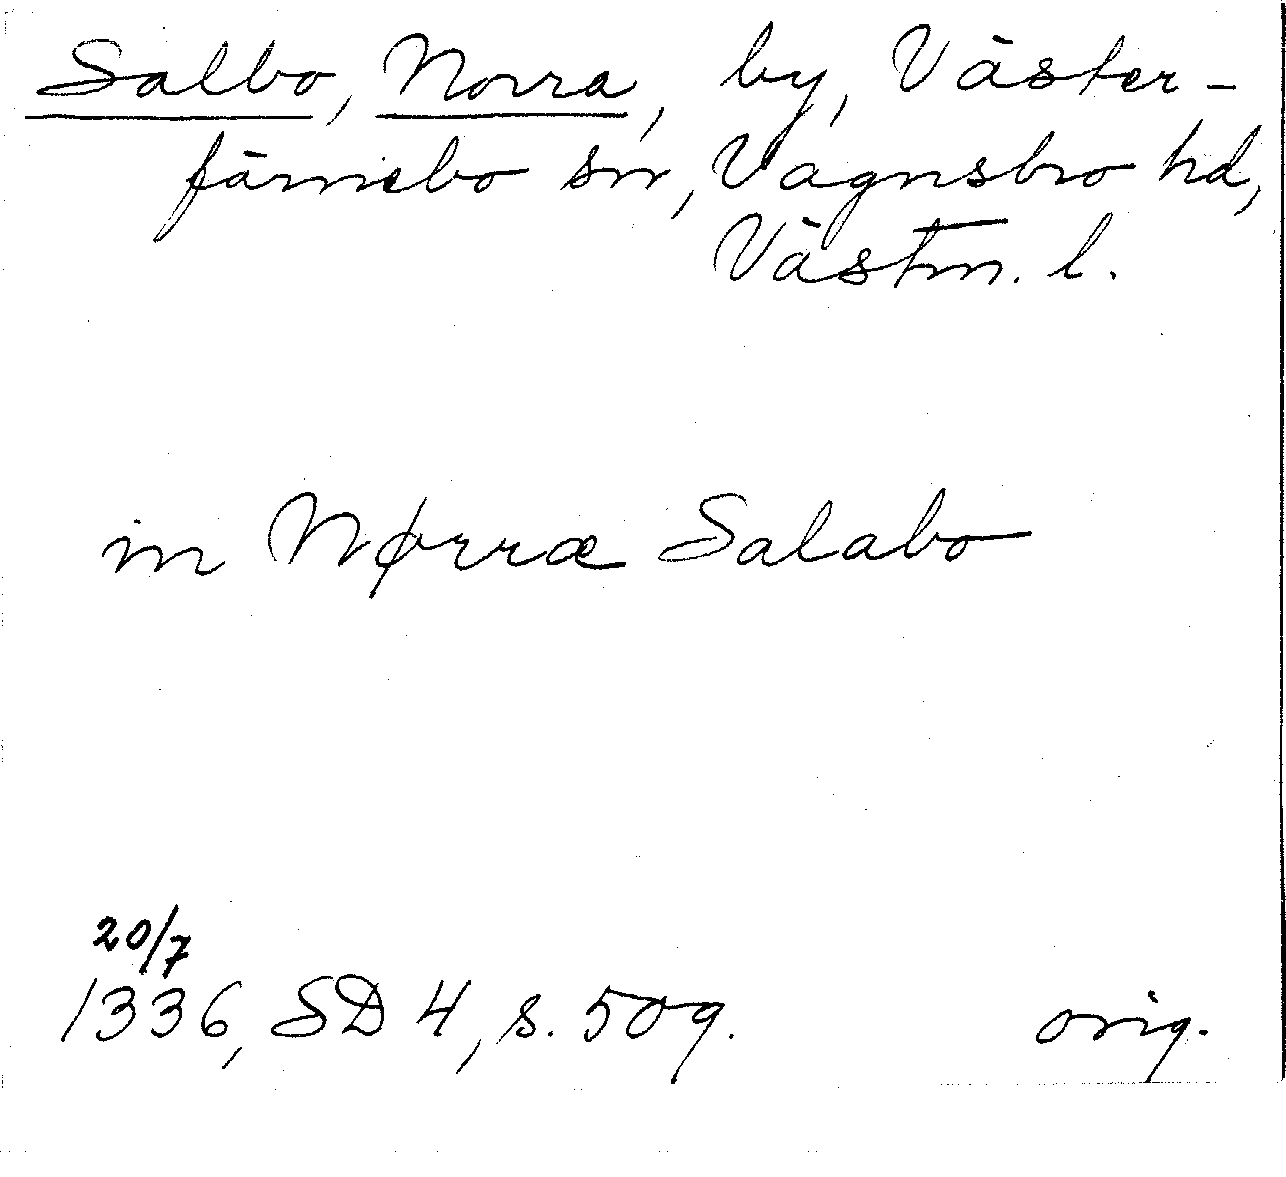 Salbo, Norra, by, Väster-
färnebo sn, Vagnsbro hd,
Västm. l.
in Nørræ Salabo
20/7
1336, SD 4, s. 509.
orig.